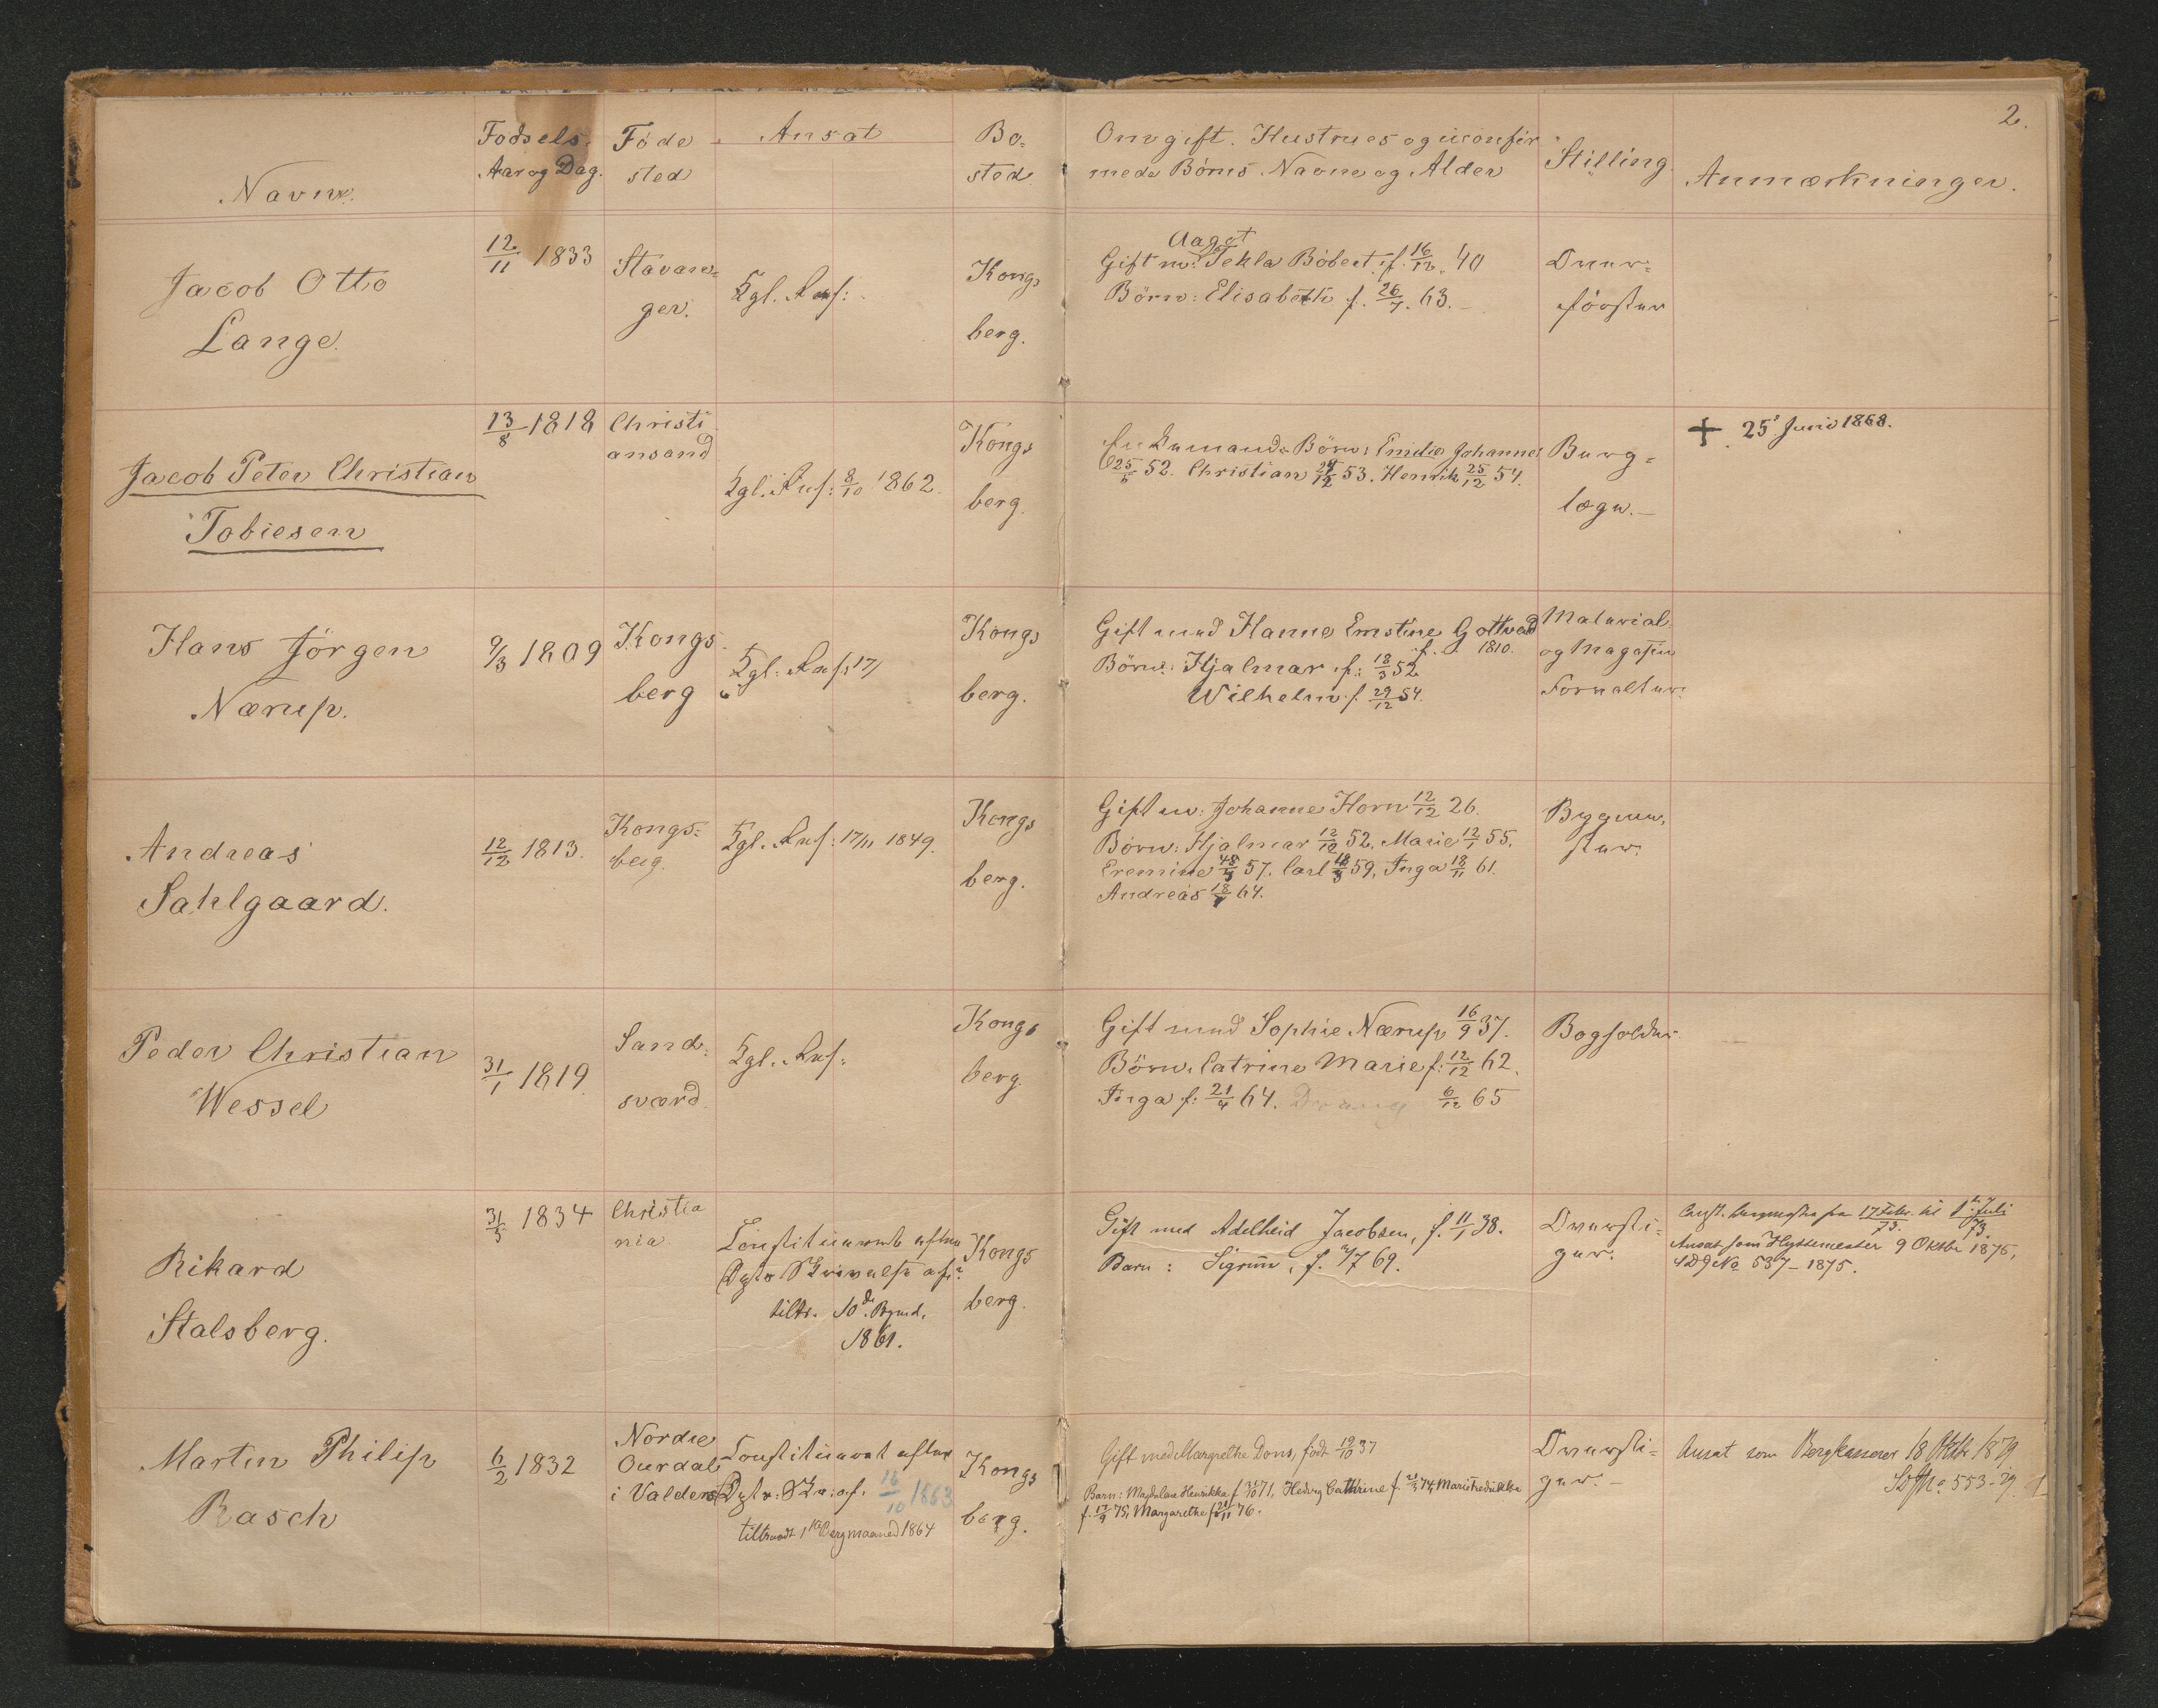 2.
Navne.
Fødsels.
Aar og Dag.
Føde
sted
Ansat
Bo=
sted
Om gift. Hustrues og uconfir
mede Børns Navne og Alder
Stilling
Anmærkninger.
Jacob Otto
Lange.
12/11 1833
Stavan=
ger.
Kgl. Res:
Kongs
berg.
Aagot
Gift m: Tekla Bøbert f. 16/12. 40
Børn: Elisabeth f. 26/7. 63.
Driv=
førster
Jacob Peter Christian
Tobiesen
13/8 1818
Christi
ansand
Kgl. Res: 8/10 1862.
Kongs
berg.
Enkemand. Børn: Emilie Johanne
25/5 52. Christian 29/12 53. Henrik 25/12 54.
Berg=
læge.
+ 25. Juni 1868.
Hans Jørgen
Nærup.
9/3 1809
Kongs
berg
Kgl. Res: 17/
Kongs
berg.
Gift med Hanne Ernstine Gottvad
f. 1810.
Børn: Hjalmar f: 18/3 52
Wilhelm f. 29/12 54.
Material
og Magasin
Forvalter.
Andreas
Sahlgaard.
12/12 1813.
Kongs=
berg.
Kgl. Res: 17/11 1849.
Kongs
berg.
Gift m: Johanne Horn 12/12 26.
Børn: Hjalmar 12/12 52, Marie 12/1 55,
Eremine 57. Carl 59, Inga 18/11 61.
Andreas 64.
Bygme
ster.
Peder Christian
Wessel
31/1 1819.
Sand=
sværd.
Kgl. Res:
Kongs
berg.
Gift med Sophie Nærup 16/9 37.
Børn. Catrine Marie f: 12/12 62.
Inga f: 21/4 64. Dreng 6/12 65
Bogholder
Rikard
Stalsberg.
31/5 1834
Christia
nia
Constitueret efter
Dptr Skrivelse af
tiltr. 10de Bgmd.
1861.
Kongs
berg.
Gift med Adelheid Jacobsen, f. 11/1 38.
Barn: Sigrun, f. 9/7 69.
Dreversti=
ger.
Const. Bergmester fra 17 Febr. 73. til 1ste Juli 73.
Ansat som Hyttemester 9 Oktbr 1875,
No 537-1875.
Martin Philip
Rasch
6/2 1832
Nordre
Ourdal
i Valders
Constitueret efter
Dptr: Skr: af. 16/10 1863
tiltraadt 1ste Bergmaaned 1864
Kongs
berg.
Gift med Margrethe Dons, født 19/10 37
Barn: Magdalene Henrikka f 3/10 71, Hedvig Cathrine f. 2/3 74, Marie Fredrikke
f. 17/9 75, Margarethe f 21/11 76.
Dreversti=
ger.
Ansat som Bergkasserer 18 Oktbr 1879
No 553-79.